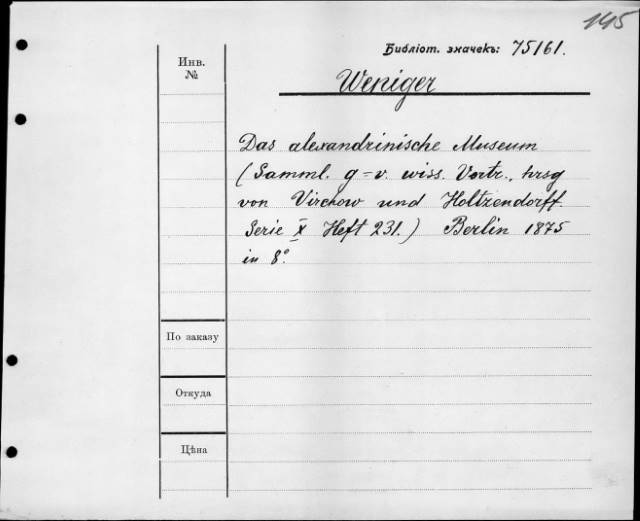 145
Библіот. значекъ: 75161.
Инв.
№
Weniger
Das alexandrinische Museum
(Samml. g=v. wiss. Vortr., hrsg
von Virchow und Holtzendorff.
Serie X Heft 231.) Berlin 1875
in 8°.
По заказу
Откуда
Цѣна